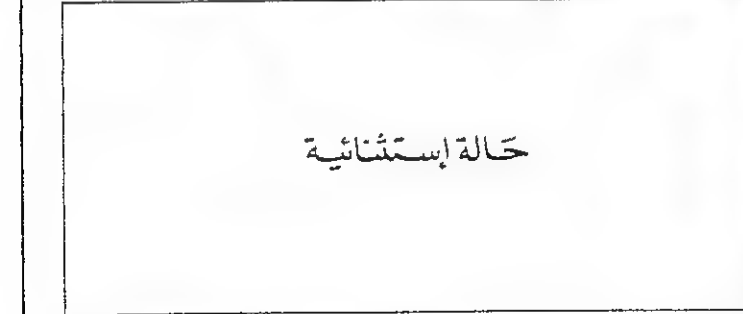 حَالة إستثنائية